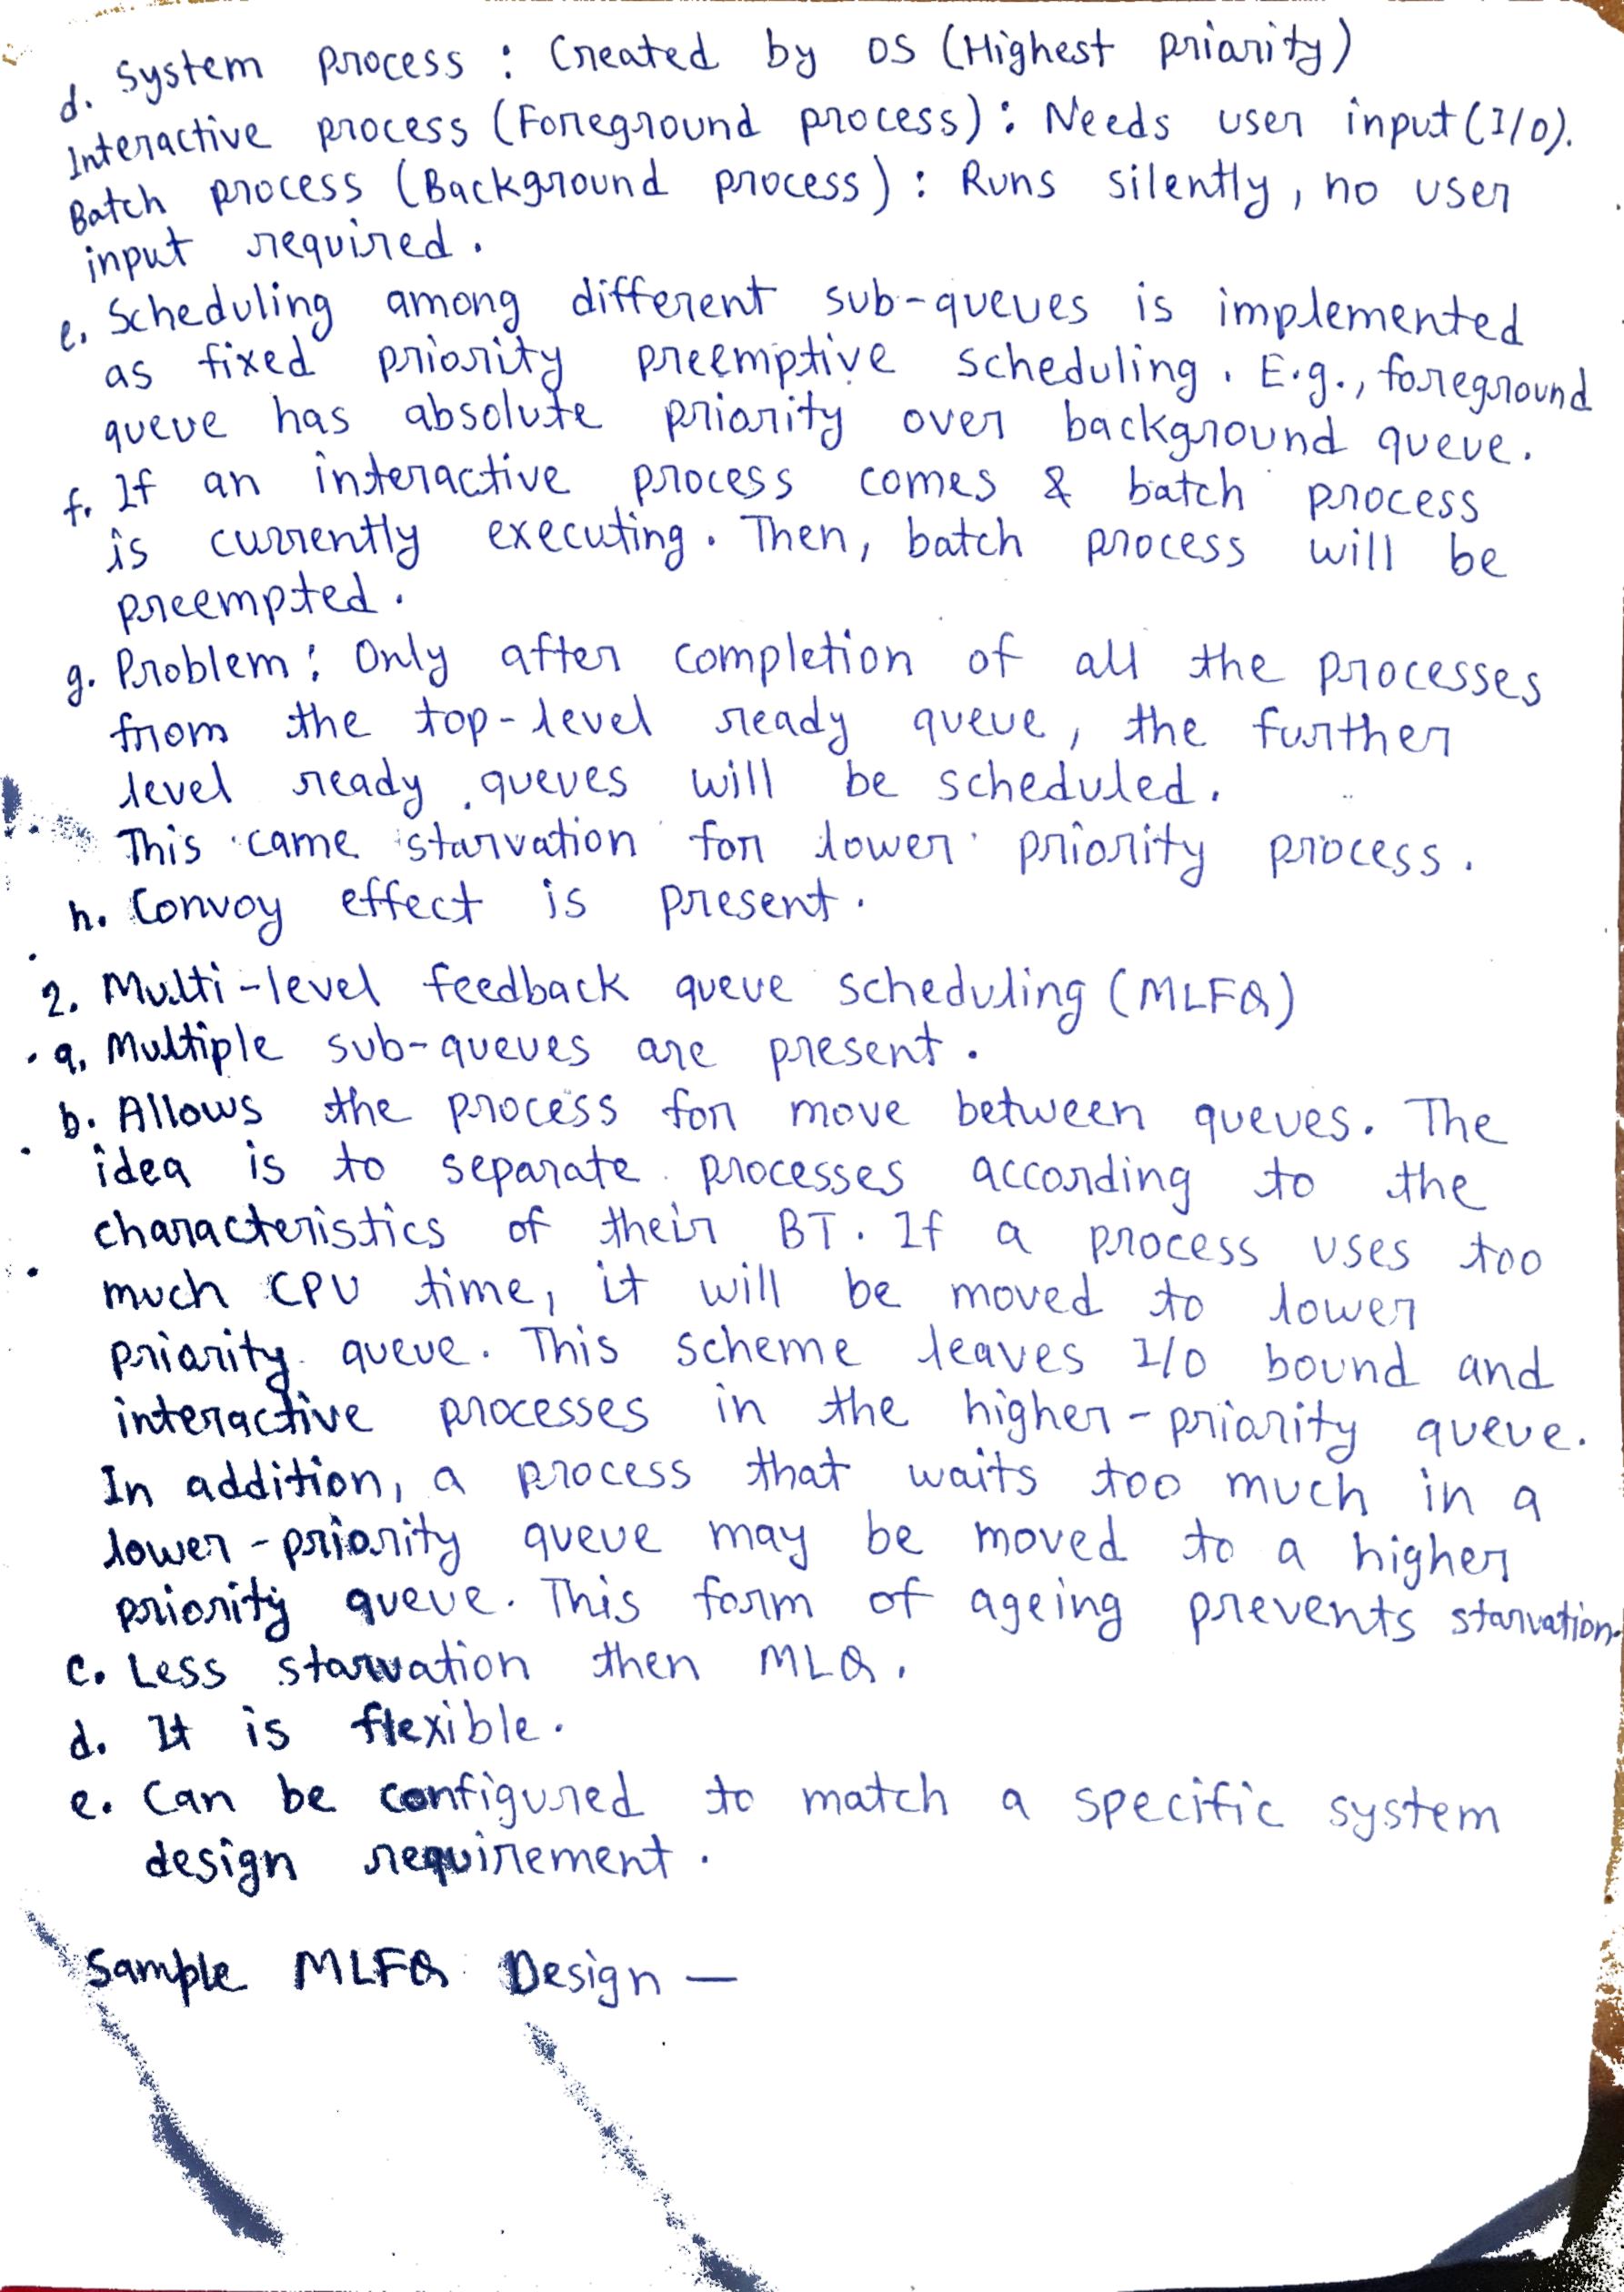 d. System process : Created by OS (Highest priority)
Interactive process (Foreground process) : Needs user input (I/O).
Batch process (Background process) : Runs silently, no user
input required.
e. Scheduling among different sub-queues is implemented
as fixed priority preemptive scheduling. E.g., foreground
queue has absolute priority over background queue.
f. If an interactive process comes & batch process
is currently executing. Then, batch process will be
preempted.
g. Problem : Only after completion of all the processes
from the top-level ready queue, the further
level ready queues will be scheduled.
This came starvation for lower priority process.
h. Convoy effect is present.
2. Multi-level feedback queue scheduling (MLFQ)
a. Multiple sub-queues are present.
b. Allows the process for move between queues. The
idea is to separate processes according to the
characteristics of their BT. If a process uses too
much CPU time, it will be moved to lower
priority queue. This scheme leaves I/O bound and
interactive processes in the higher-priority queue.
In addition, a process that waits too much in a
lower-priority queue may be moved to a higher
priority queue. This form of ageing prevents starvation.
c. Less starvation then MLQ.
d. It is flexible.
e. Can be configured to match a specific system
design requirement.
Sample MLFQ Design —